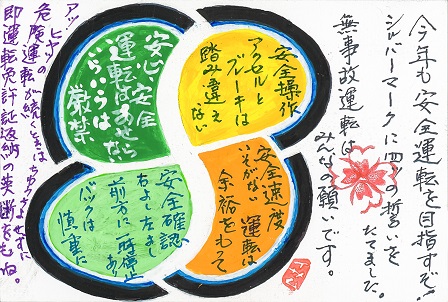 今年も安全運転を目指すぞ!
シルバーマークに四つの誓いを
たてました。
無事故運転は
みんなの願いです。
安全操作
アクセルと
ブレーキは
踏み違え
ない
安全速度
いそがない運転は
余裕をもって
安心・安全
運転はあせらない
いらいらは
厳禁
安全確認
右よし左よし
前方に
バックは
慎重に
アッ ヒヤッの
危険運転が続くときはちゅうちょせずに
即運転免許証返納の英断をもね。